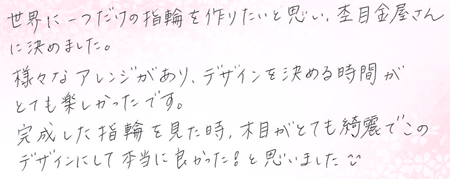 世界に一つだけの指輪を作りたいと思い、杢目金屋さん
に決めました。
様々なアレンジがあり、デザインを決める時間が
とても楽しかったです。
完成した指輪を見た時、木目がとても綺麗でこの
デザインにして本当に良かった!と思いました